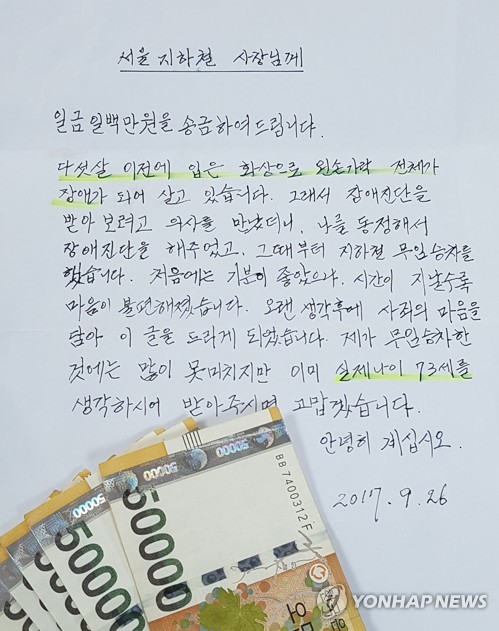 서울 지하철 사장님께
일금 일백만원을 송금하여드립니다.
다섯살 이전에 입은 화상으로 왼손가락 전체가
장애가 되어 살고 있습니다. 그래서 장애진단을
받아 보려고 의사를 만났더니, 나를 동정해서
장애진단을 해주었고, 그때부터 지하철 무임승차를
했습니다. 처음에는 기분이 좋았으나, 시간이 지날수록
마음이 불편해졌습니다. 오랜 생각후에 사죄의 마음을
담아 이 글을 드리게 되었습니다. 제가 무임승차한
것에는 많이 못미치지만 이미 실제나이 73세를
생각하시어 받아주시면 고맙겠습니다.
안녕히 계십시오.
2017.9.26
50000
50000
50000
50000
BB7400312F
50000
YONHAP NEWS